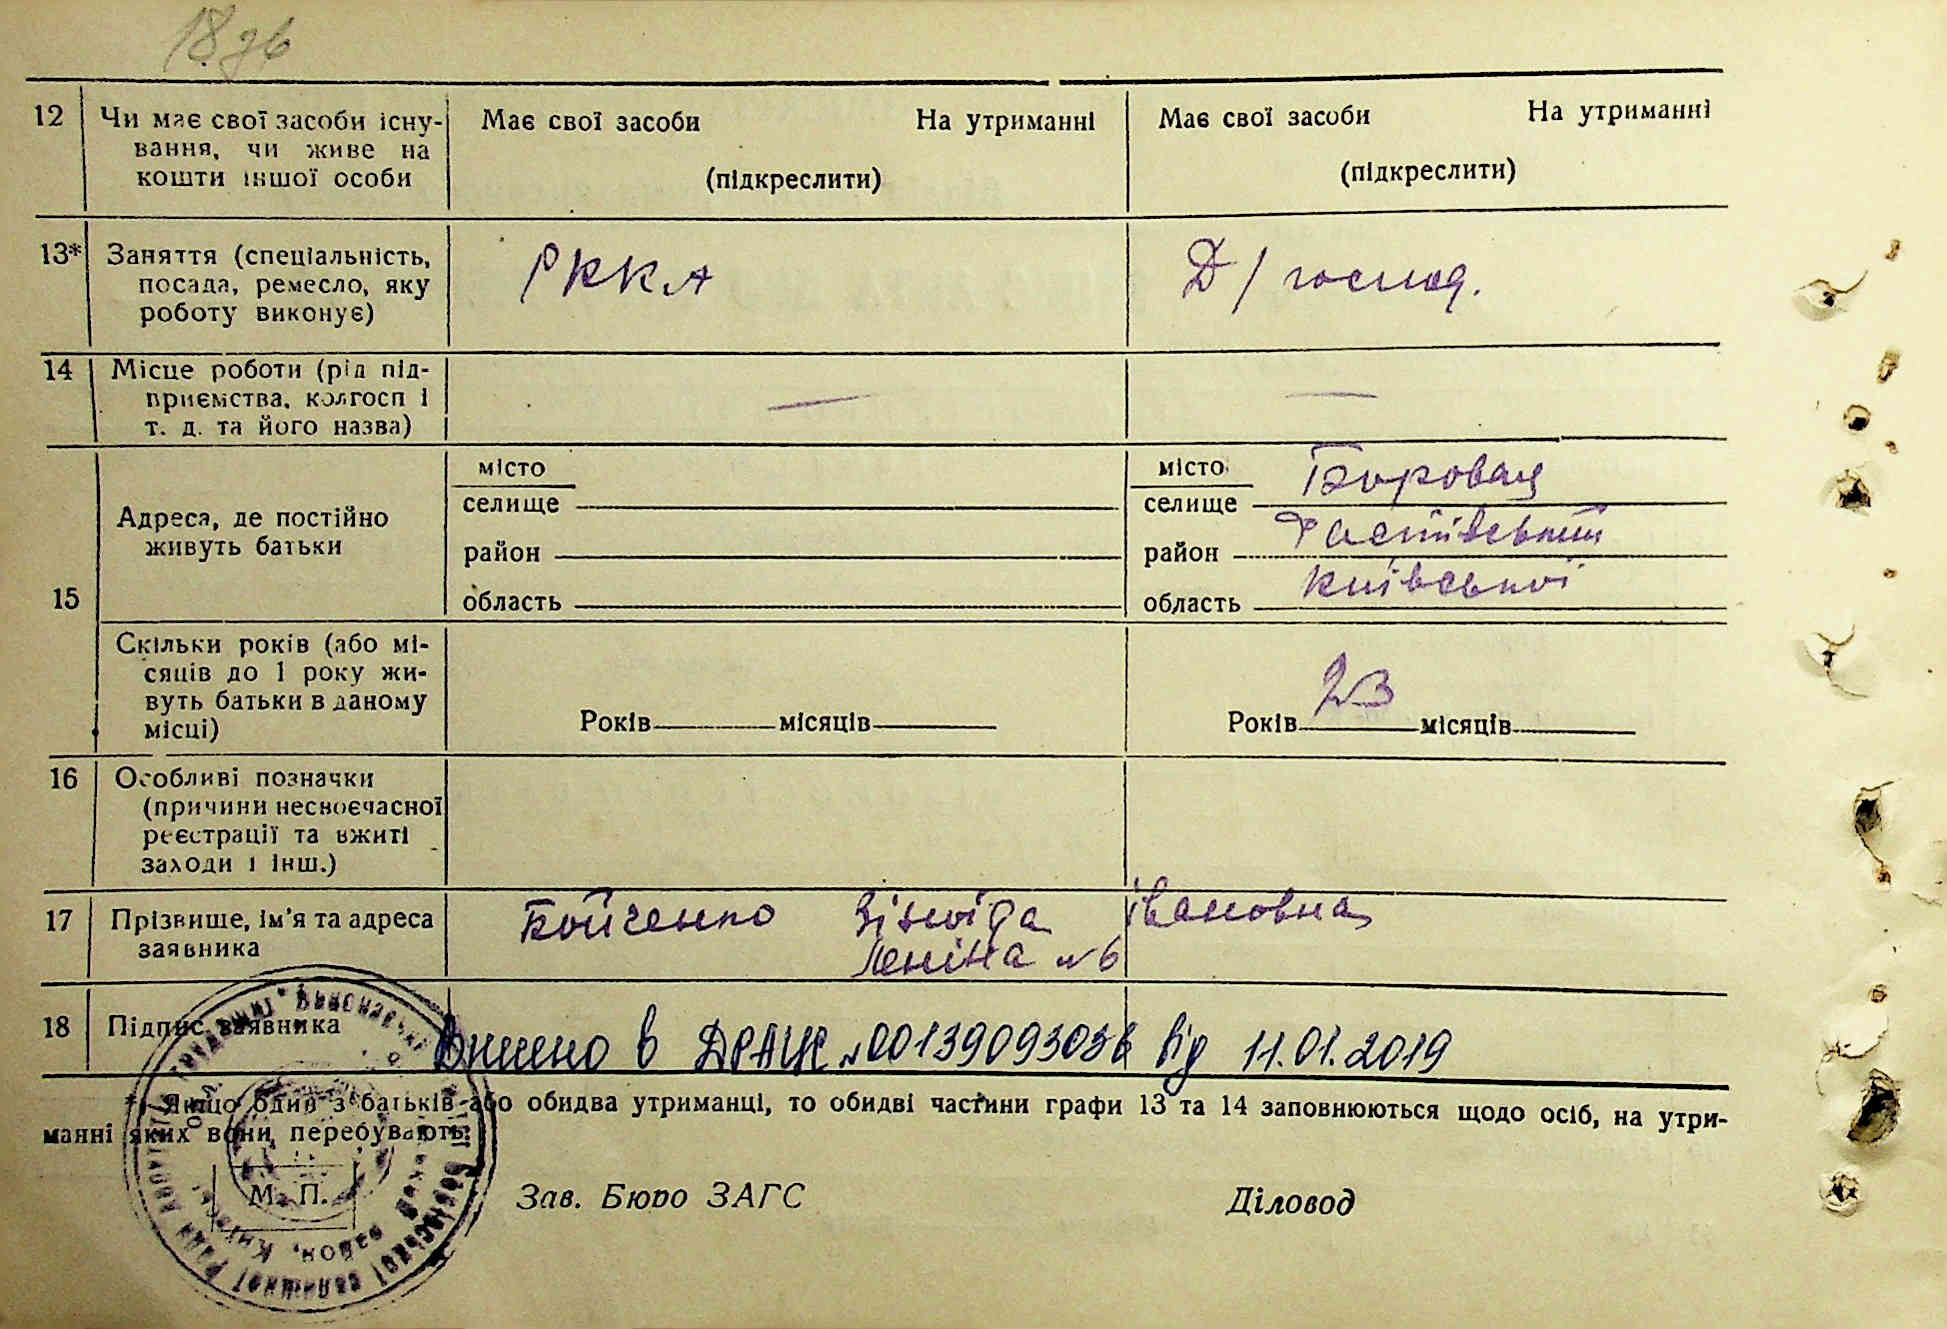 18 зв
12 Чи має свої засоби існу- Має свої засоби На утриманні Має свої засоби На утриманні
вання, чи живе на
кошти іншої особи (підкреслити) (підкреслити)
13* Заняття (спеціальність, РККА Д/господ.
посада, ремесло, яку
роботу виконує)
14 Місце роботи (рід під- — —
приємства, колгосп і
т. д. та його назва)
15 Адреса, де постійно
живуть батьки
місто місто Боровая
селище селище
район район Фастівський
область область Київської
Скільки років (або мі-
сяців до 1 року жи-
вуть батьки в даному
місці) Років місяців Років 23 місяців
16 Особливі позначки
(причини несвоєчасної
реєстрації та вжиті
заходи і інш.)
17 Прізвище, ім'я та адреса Бойченко Зінаіда Івановна
заявника Леніна №6
18 Підпис заявника Внесено в ДРАЦС №00139093036 від 11.01.2019
*) Якщо один з батьків або обидва утриманці, то обидві частини графи 13 та 14 заповнюються щодо осіб, на утри-
манні яких вони перебувають.
М. П. Зав. Бюро ЗАГС Діловод